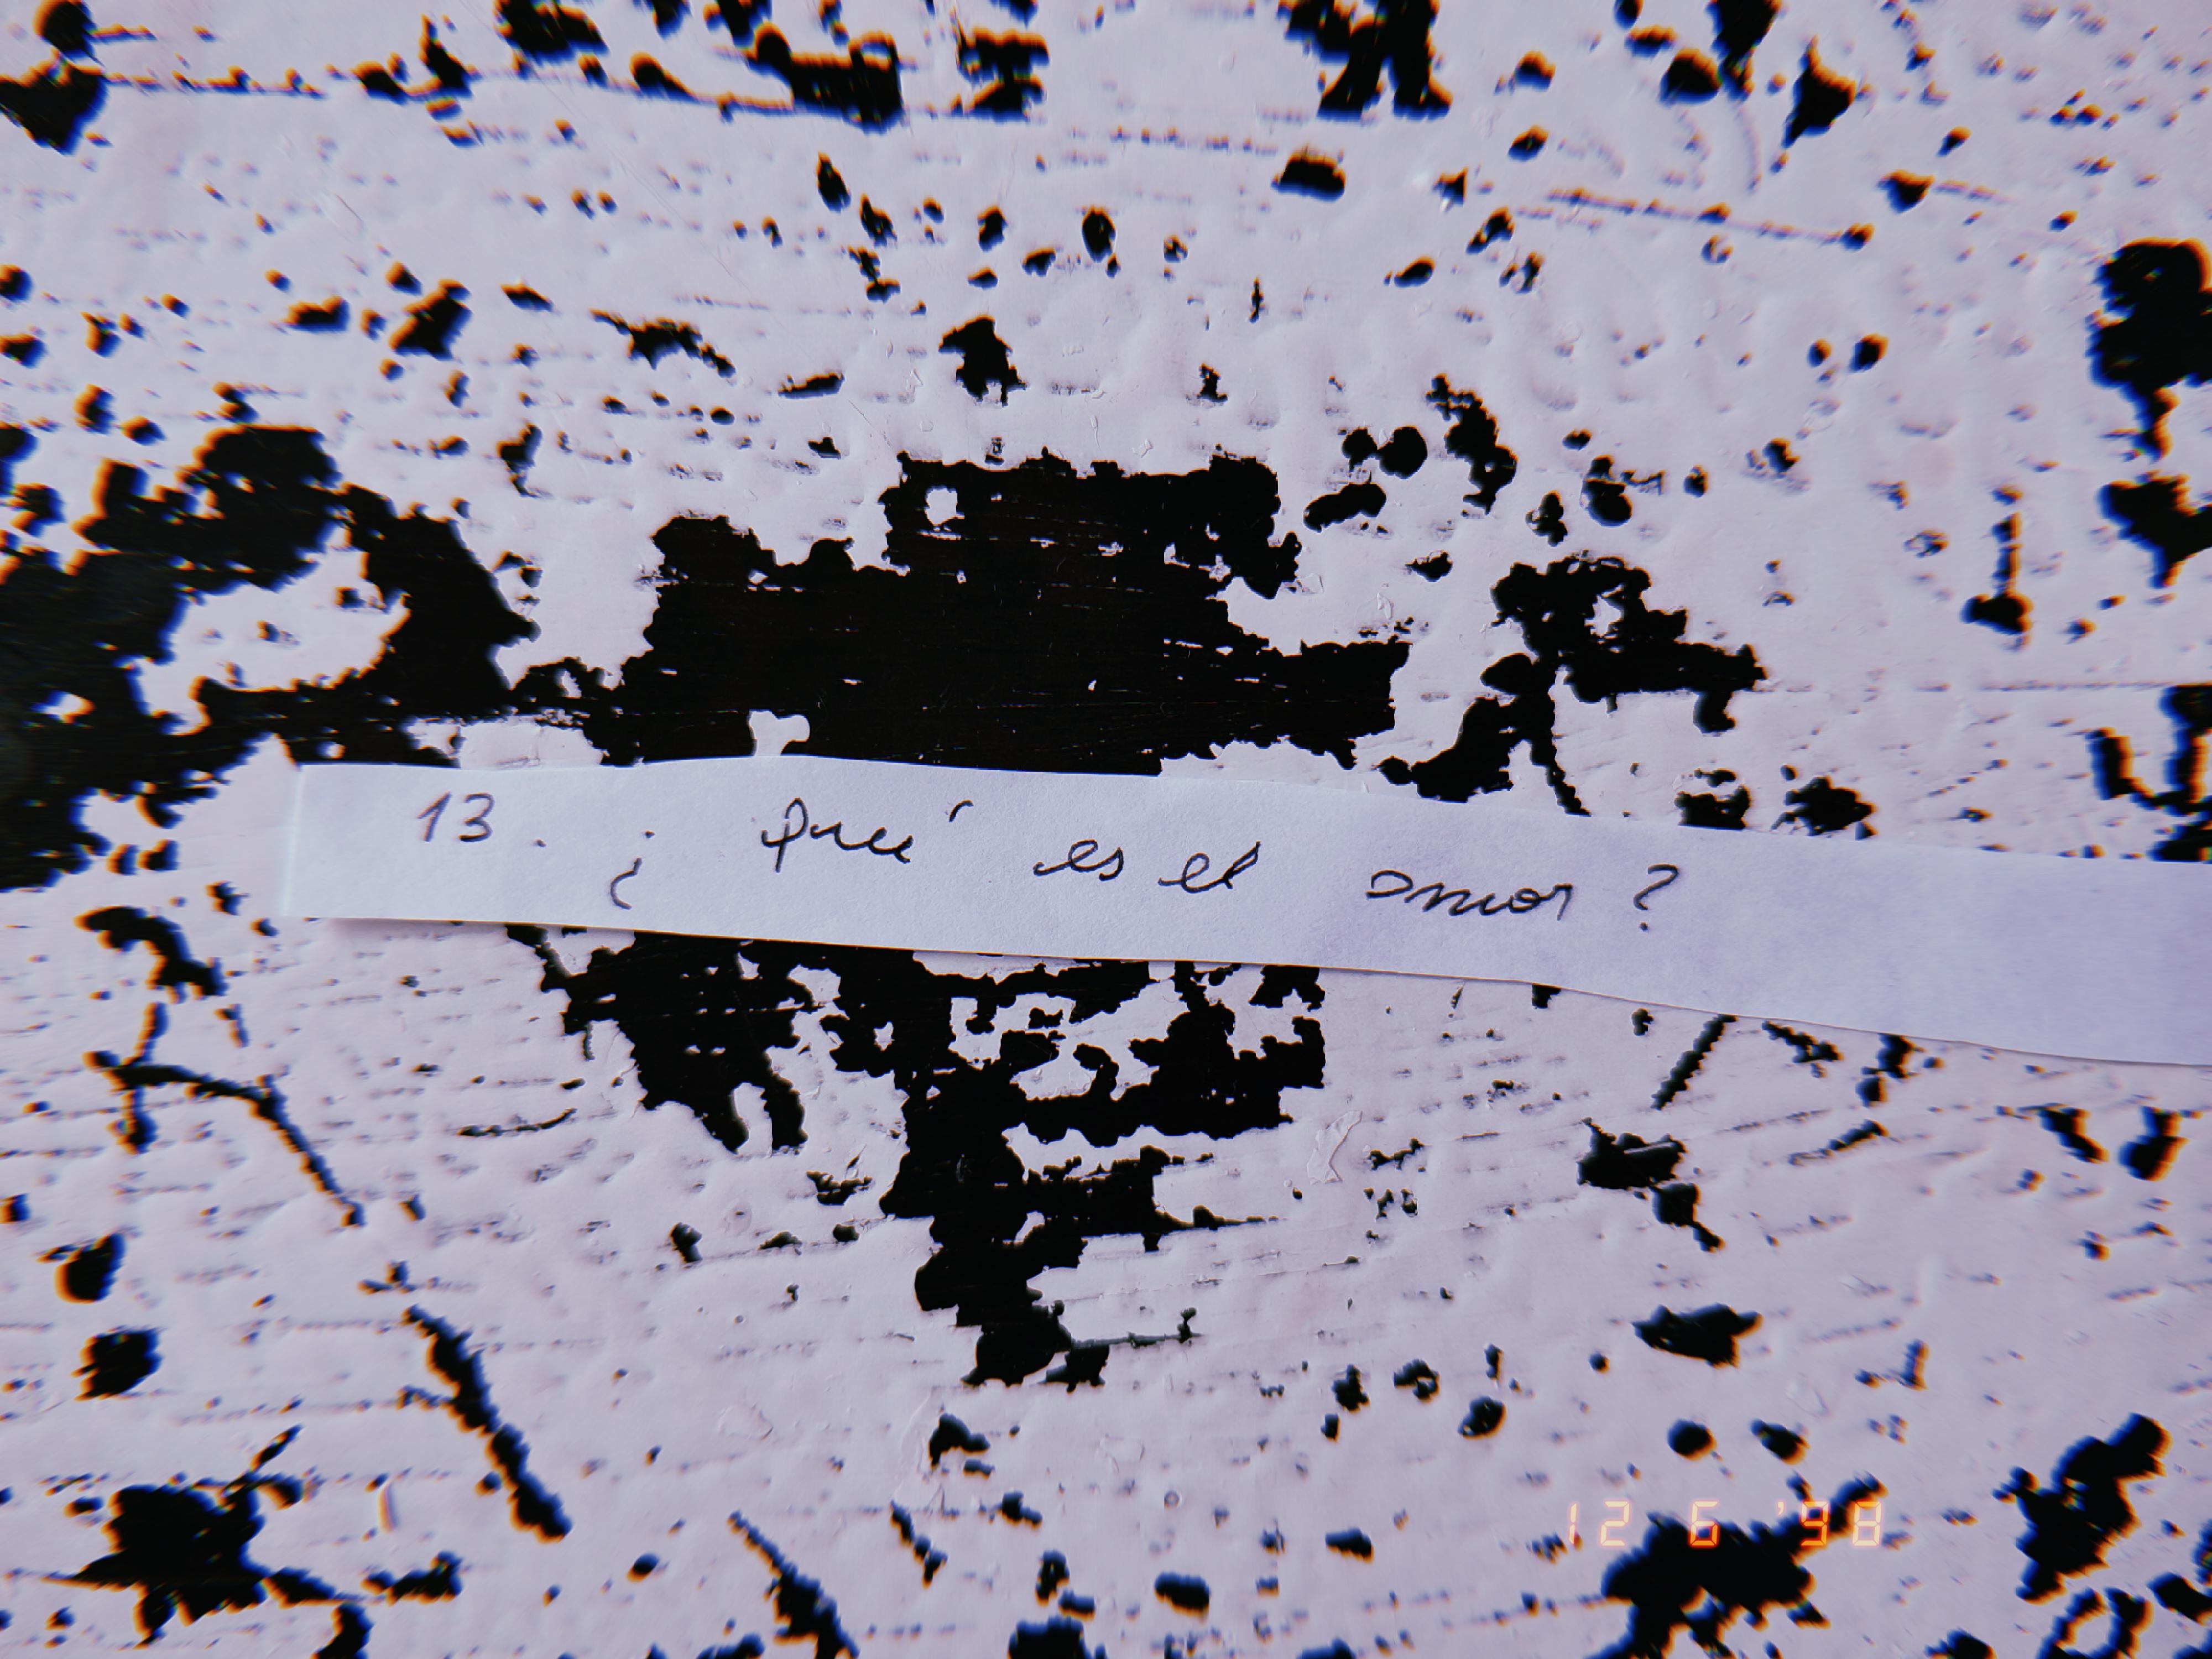 13. ¿ qué es el amor?
12 6 '98